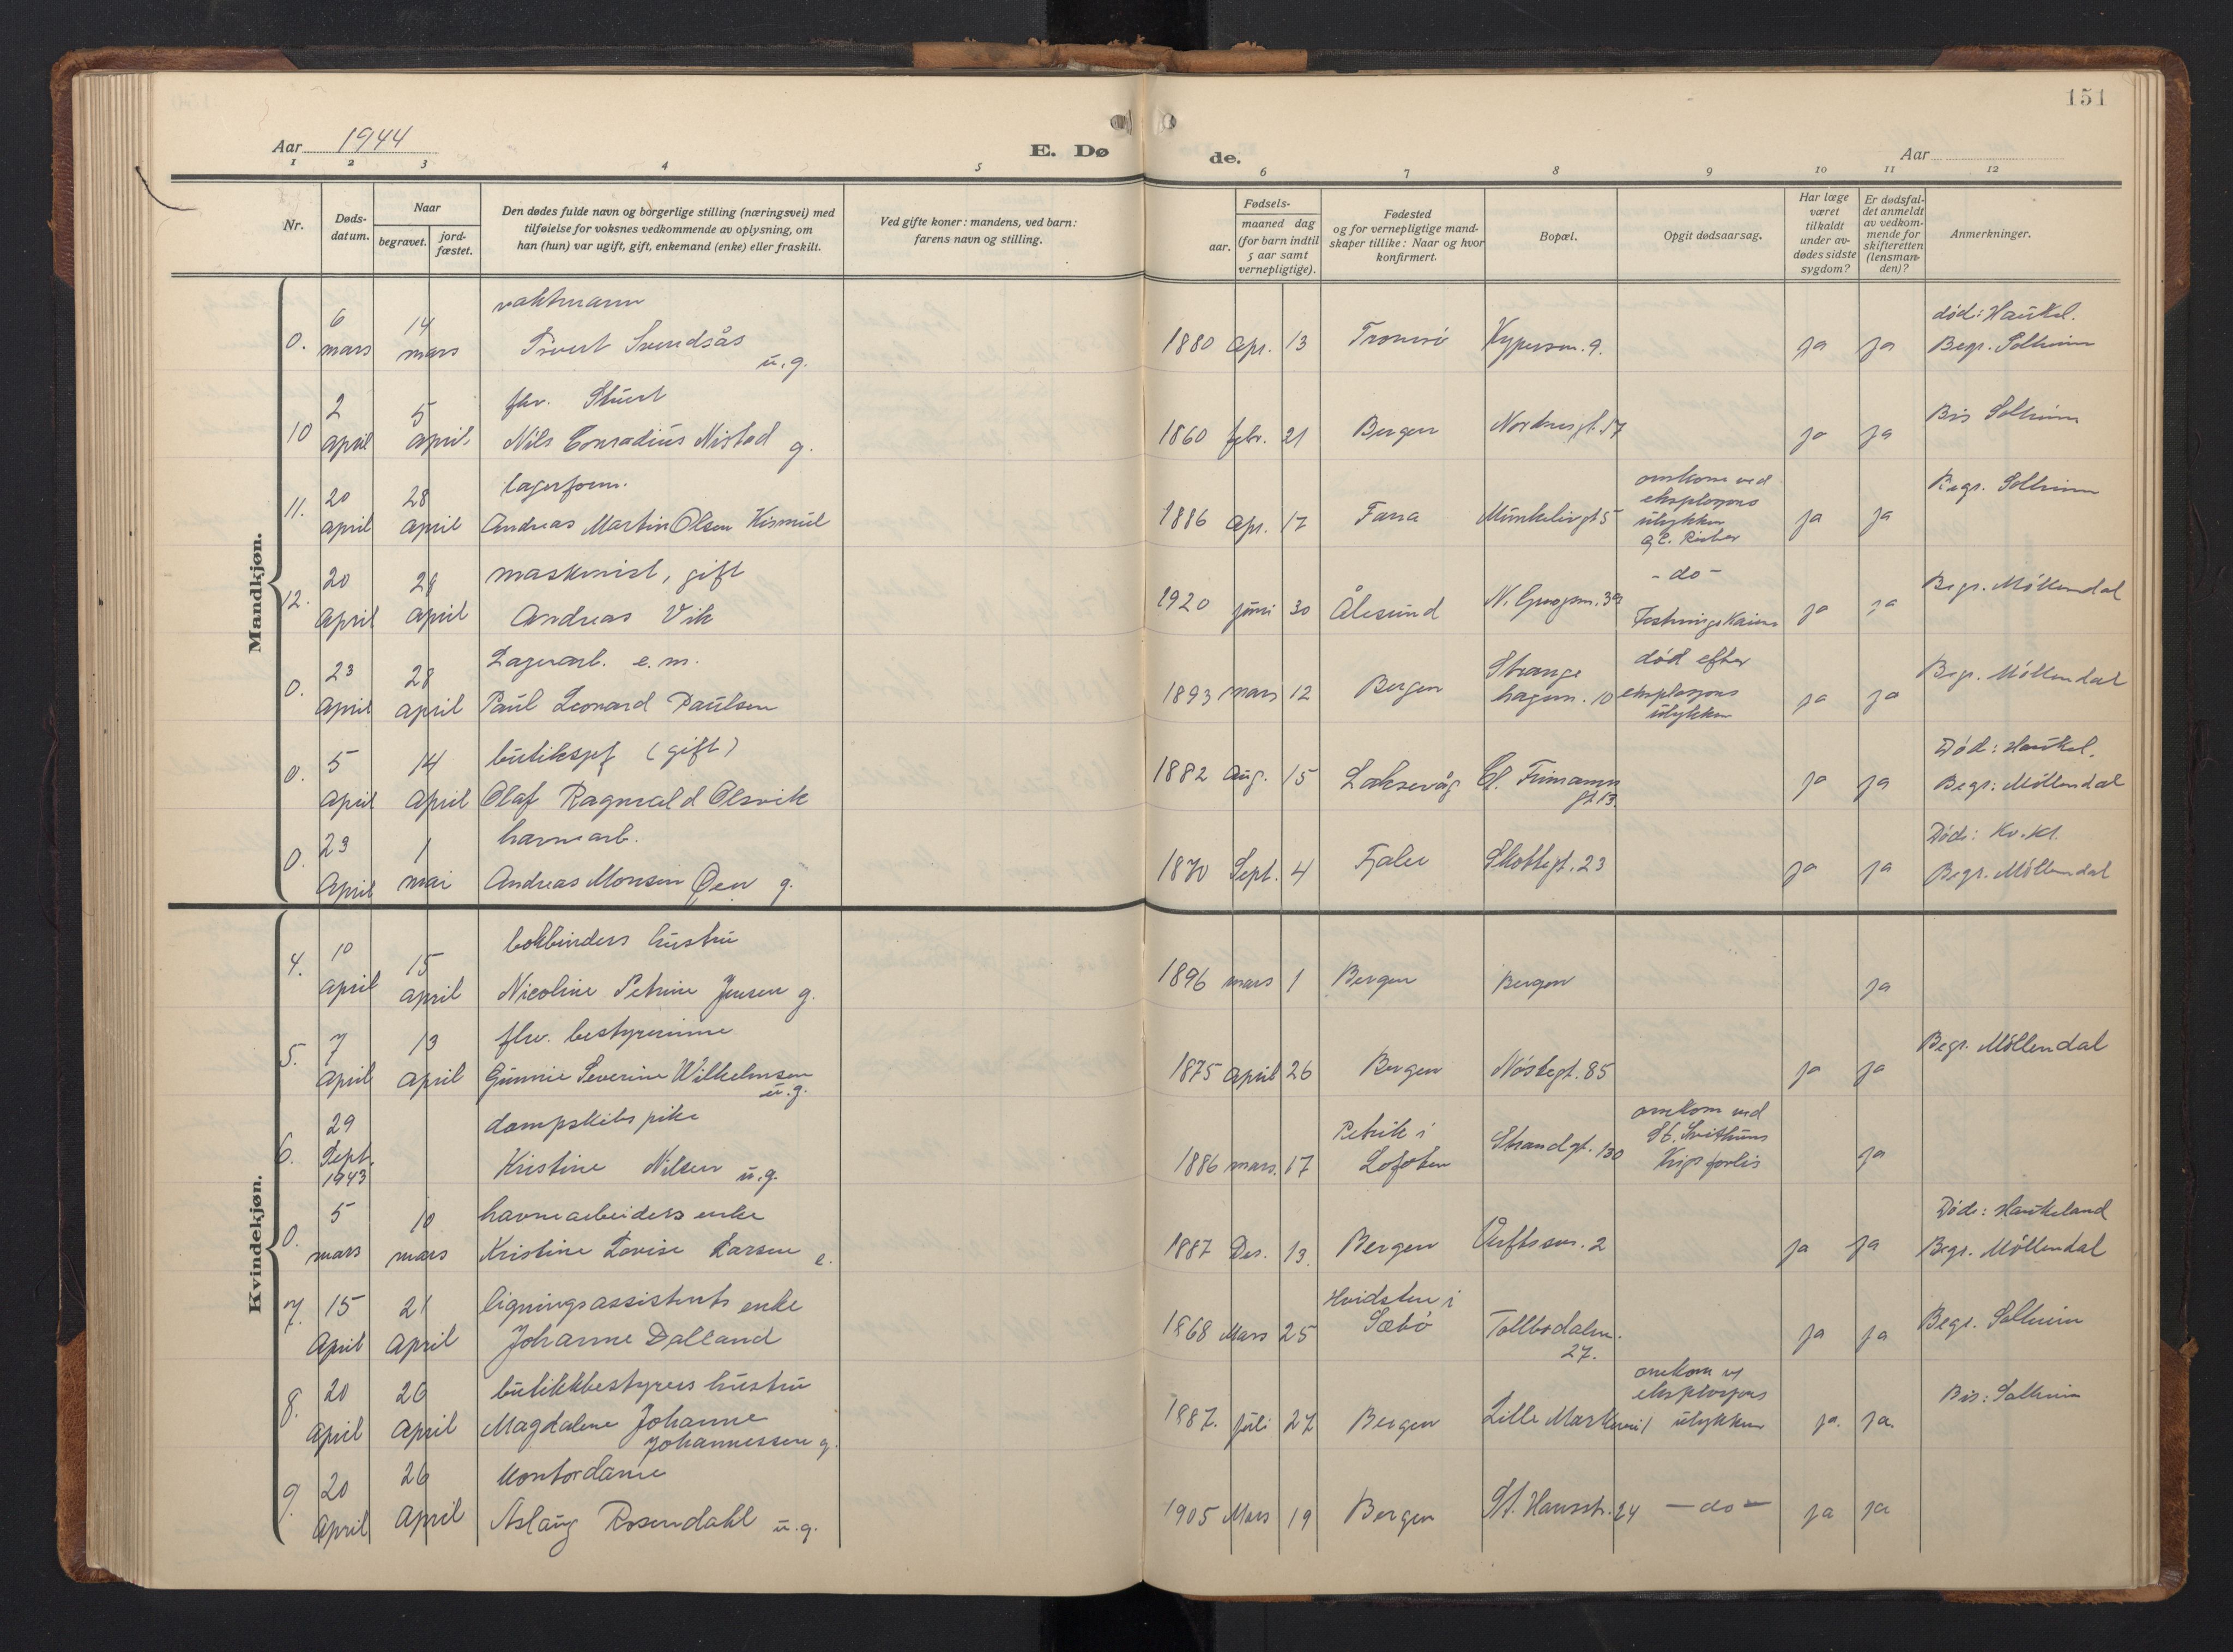 151
Aar 1944
E. Dø
de.
Aar
1 2 3 4 5 6 7 8 9 10 11 12
Nr.
Døds-
datum.
Naar
begravet.
jord-
fæstet.
Den dødes fulde navn og borgerlige stilling (næringsvei) med
tilføielse for voksnes vedkommende av oplysning, om
han (hun) var ugift, gift, enkemand (enke) eller fraskilt.
Ved gifte koner: mandens, ved barn:
farens navn og stilling.
Fødsels-
aar.
maaned dag
(for barn indtil
5 aar samt
vernepligtige).
Fødested
og for vernepligtige mand-
skaper tillike: Naar og hvor
konfirmert.
Bopæl.
Opgit dødsaarsag.
Har læge
været
tilkaldt
under av-
dødes sidste
sygdom?
Er dødsfal-
det anmeldt
av vedkom-
mende for
skifteretten
(lensman-
den)?
Anmerkninger.
Mandkjøn.
vaktmann
0. 6 mars 14 mars Sivert Svendsås u.g. 1880 Apr. 13 Tromsø 9. ja ja død: Haukel.
Begr. Solheim
fhv. Stuert
10 2 april 5 april Nils Conradius Nistad g. 1860 febr. 21 Bergen Nordnesgt. 57 ja ja Bis Solheim
lagerform.
11. 20 april 28 april Andreas Martin Olsen Kismul 1886 Apr. 17 Fana Munkelivgt 5 omkom ved
eksplosjons
ulykken
ja ja Begr. Solheim
maskinist, gift
12. 20 April 28 april Andreas Vik 1920 juni 30 Ålesund - do -
Festningskaien ja ja Begr. Møllendal
Lagerarb. e.m.
0. 23 April 28 april Paul Leonard Paulsen 1893 mars 12 Bergen Strange
hagen. 10 død efter
eksplosjons
ulykken ja ja Begr. Møllendal
butikspf (gift)
0. 5 April 14 April Olaf Ragnvald Olsvik 1882 Aug. 15 Laksevåg Cl. Frimanns
gt 13. ja ja Død: Haukel.
Begr: Møllendal
havnearb.
0. 23 April 1 mai Andreas Monsen Øen g. 1870 Sept. 4 Fjaler Skottegt. 23 ja ja Død: Kv. Kl.
Begr. Møllendal
Kvindekjøn.
bokbinders hustru
4. 10 april 15 april Nicoline Petrine Jensen g. 1896 mars 1 Bergen Bergen ja
fhv. bestyrerinne
5. 7 April 13 April Gunnie Severine Wilhelmsen
u.g. 1875 april 26 Bergen Nøstegt. 85 ja ja Begr. Møllendal
dampskibspike
6. 29 Sept. 1943 Kristine Nilsen u.g. 1886 mars. 17 Petvik i
Lofoten Strandgt. 130 omkom ved
St. Svithuns
krigsforlis ja
havnearbeiders enke
0. 5 mars 10 mars Kristine Lovise Larsen e. 1887 Des. 13 Bergen Verftssm. 2 ja ja Død: Haukeland
Begr. Møllendal
ligningsassistents enke
7. 15 April 21 April Johanne Dalland 1868 Mars 25 Hvidsten i
Sæbø Tollbodalm.
27. ja ja Begr. Solheim
butikkbestyrers hustru
8. 20 April 26 April Magdalene Johanne
Johannessen g. 1887. juli 27 Bergen Lille Markevei 1 omkom v/
eksplosjons
ulykken ja. ja. Bis: Solheim
Kontordame
9. 20 April 26 April Aslaug Rosendahl u.g. 1905 Mars 19 Bergen St. Hansstr. 24 - do - ja ja